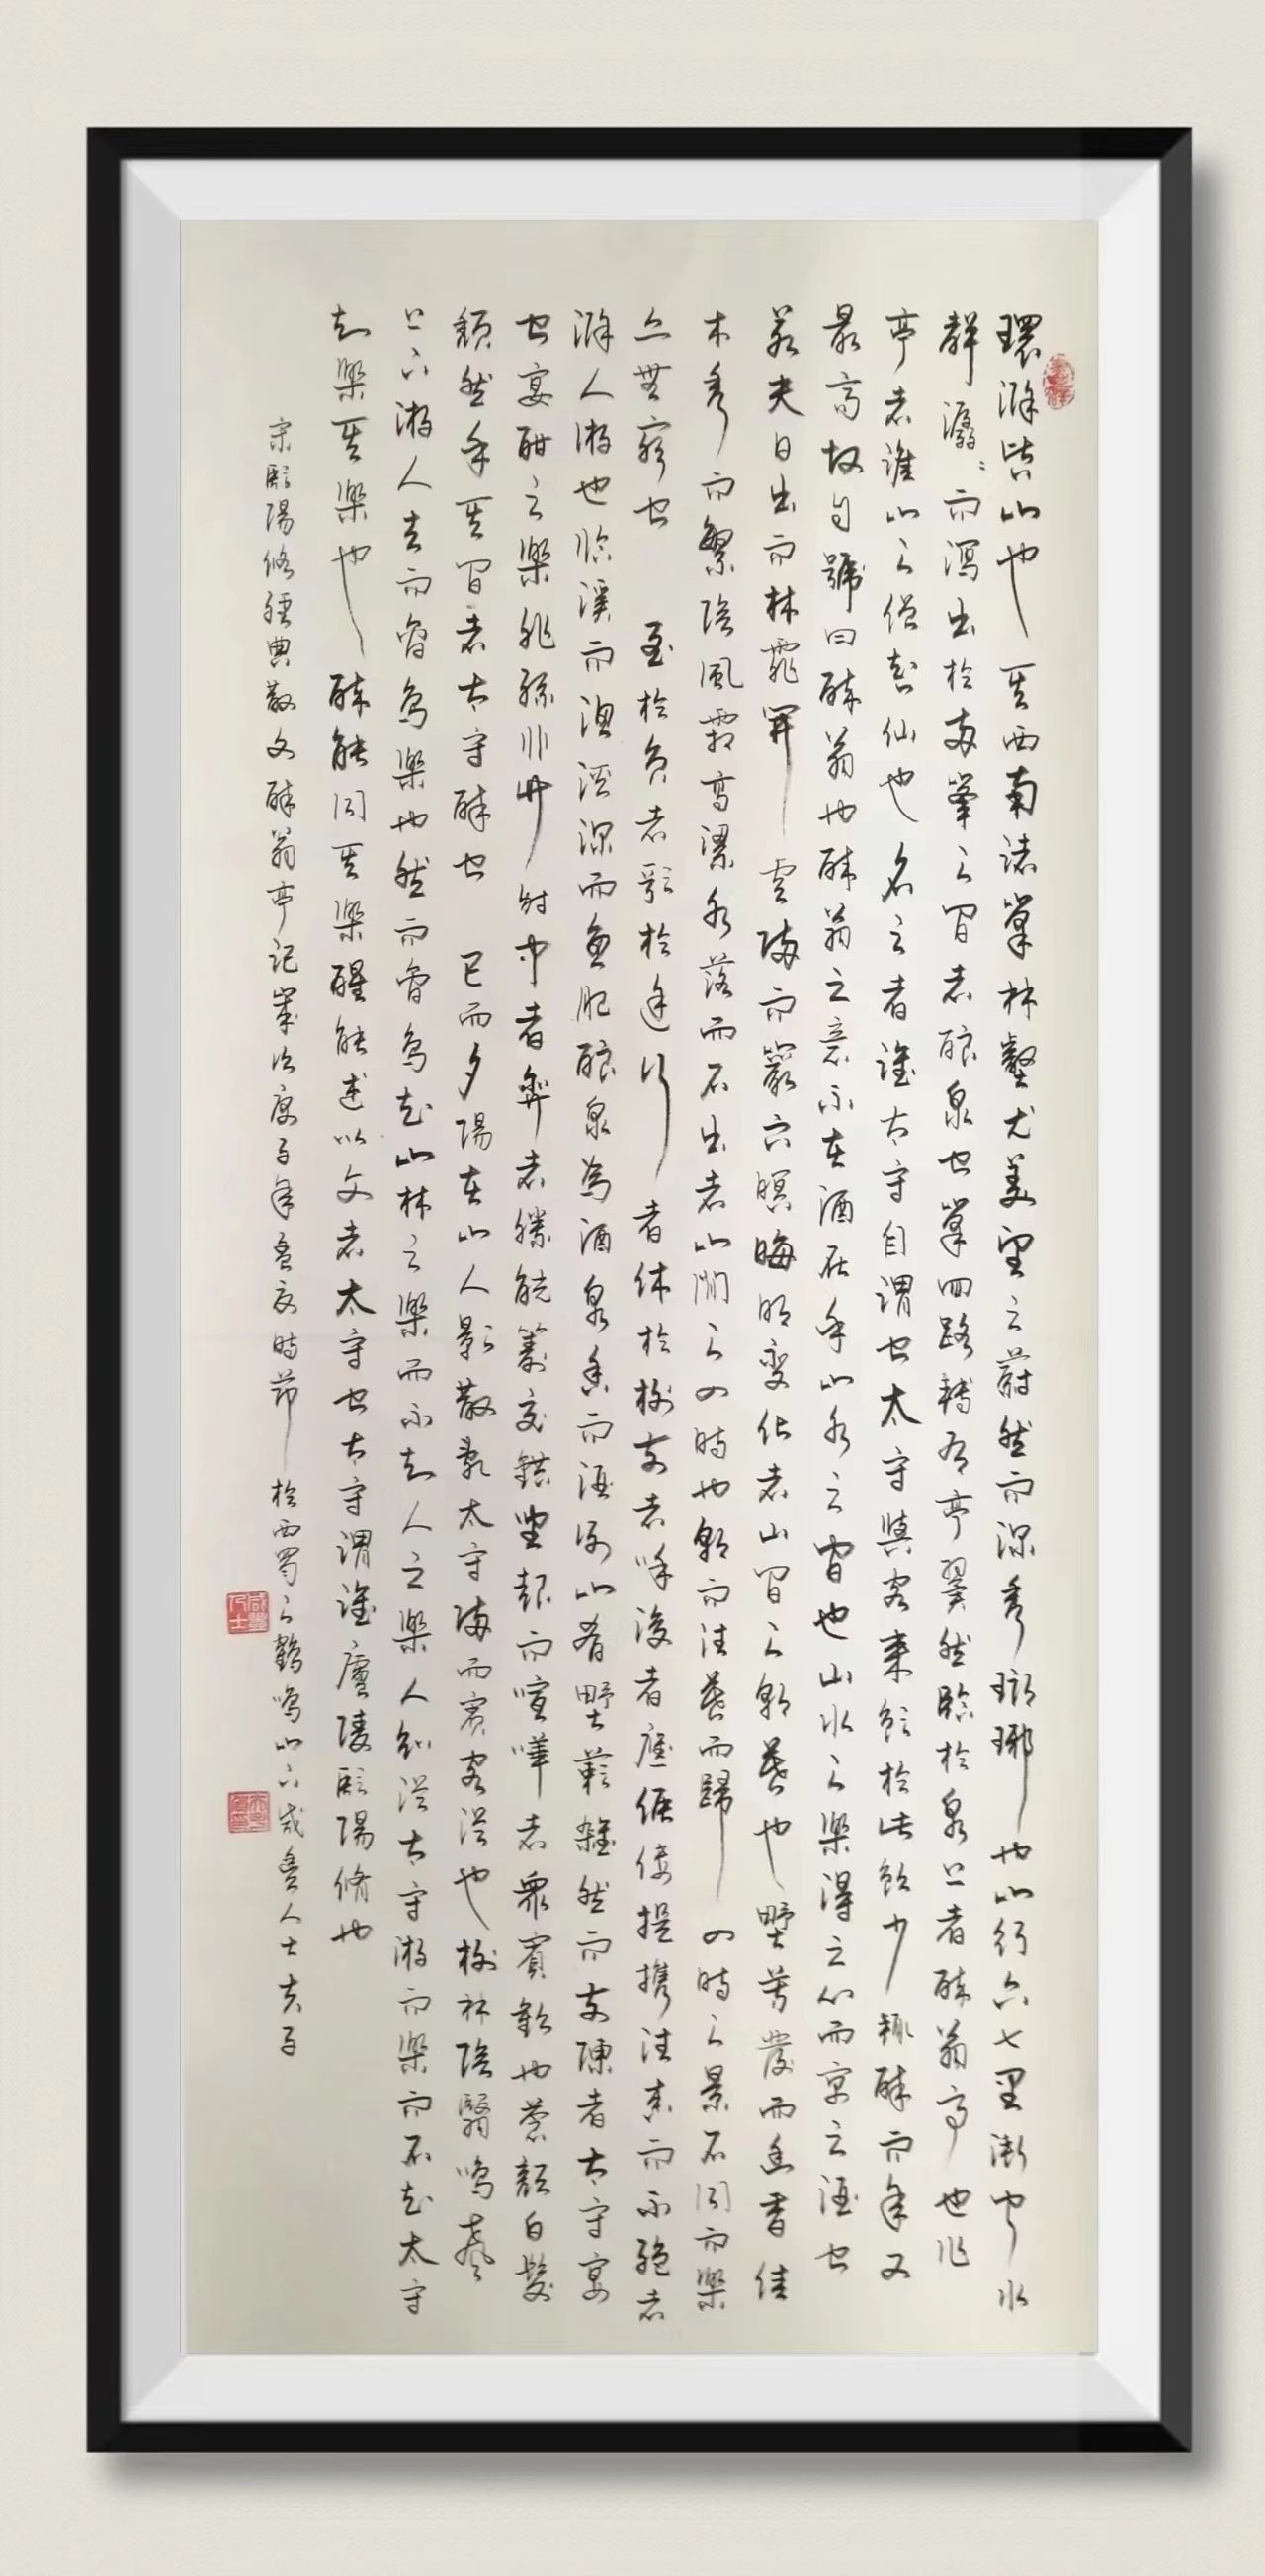 環滁皆山也其西南諸峯林壑尤美望之蔚然而深秀瑯琊也山行六七里漸聞水
聲潺〻而瀉出於兩峯之間者釀泉也峯回路轉有亭翼然臨於泉上者醉翁亭也作
亭者誰山之僧智仙也名之者誰太守自謂也太守與客來飲於此飲少輒醉而年又
最高故自號曰醉翁也醉翁之意不在酒在乎山水之間也山水之樂得之心而寓之酒也
若夫日出而林霏開雲歸而巖穴暝晦明變化者山間之朝暮也野芳發而幽香佳
木秀而繁陰風霜高潔水落而石出者山間之四時也朝而往暮而歸四時之景不同而樂
亦無窮也至於負者歌於途行者休於樹前者呼後者應傴僂提攜往來而不絕者
滁人游也臨溪而漁溪深而魚肥釀泉為酒泉香而酒洌山肴野蔌雜然而前陳者太守宴
也宴酣之樂非絲非竹射中者弈者勝觥籌交錯坐起而喧嘩者眾賓歡也蒼顏白髮
頹然乎其間者太守醉也已而夕陽在山人影散亂太守歸而賓客從也樹林陰翳鳴聲
上下游人去而禽鳥樂也然而禽鳥知山林之樂而不知人之樂人知從太守游而樂而不知太守
之樂其樂也醉能同其樂醒能述以文者太守也太守謂誰廬陵歐陽脩也
宋歐陽脩經典散文醉翁亭記歲次庚子年夏時節於西蜀之鶴鳴山下咸魚人士夫子